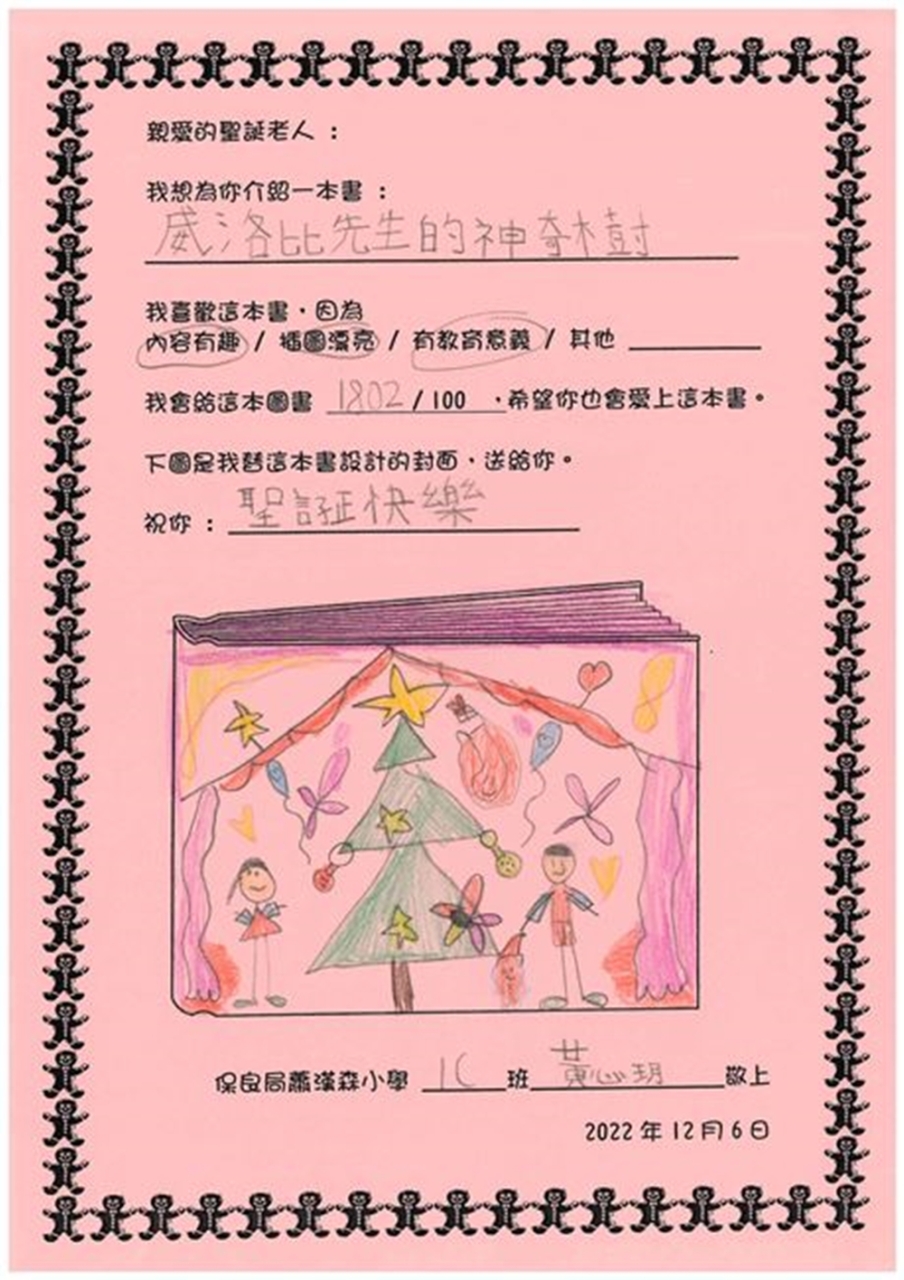 親愛的聖誕老人：
我想為你介紹一本書：
威洛比先生的神奇樹
我喜歡這本書，因為
內容有趣 / 插圖漂亮 / 有教育意義 / 其他
我會給這本圖書 1802 / 100 ，希望你也會愛上這本書。
下圖是我替這本書設計的封面，送給你。
祝你：聖誕快樂
保良局蕭漢森小學 1C 班 黃心玥 敬上
2022 年 12 月 6 日